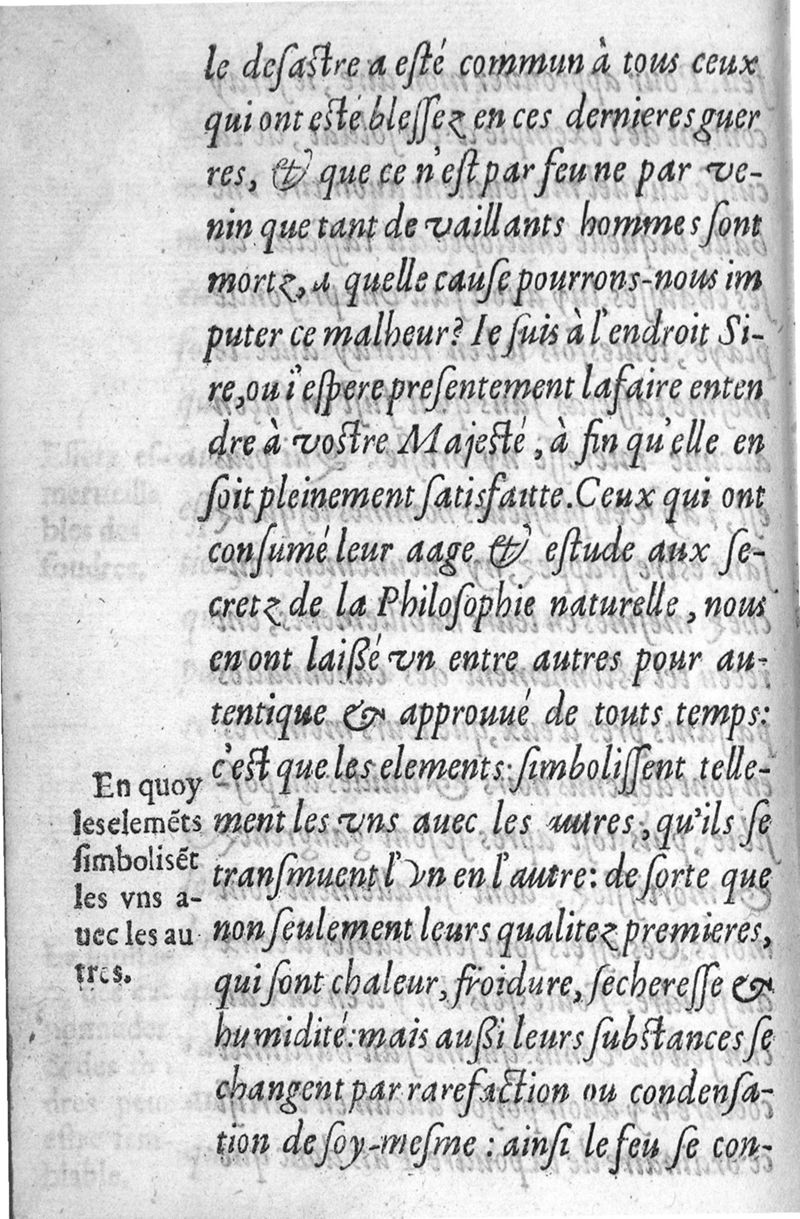 le desastre a esté commun à tous ceux
qui ont esté blessez en ces dernieres guer
res, & que ce n'est par feu ne par ve-
nin que tant de vaillants hommes sont
mortz, a quelle cause pourrons-nous im
puter ce malheur? Ie suis à l'endroit Si-
re, ou i'espere presentement la faire enten
dre à vostre Majesté, à fin qu'elle en
soit pleinement satisfaitte. Ceux qui ont
consumé leur aage & estude aux se-
cretz de la Philosophie naturelle, nous
en ont laißé vn entre autres pour au-
tentique & approuué de touts temps:
c'est que les elements simbolissent telle-
ment les vns auec les autres, qu'ils se
transmuent l'vn en l'autre: de sorte que
non seulement leurs qualitez premieres,
qui sont chaleur, froidure, secheresse &
humidité: mais außi leurs substances se
changent par rarefaction ou condensa-
tion de soy-mesme: ainsi le feu se con-
En quoy
les elemẽts
simbolisẽt
les vns a-
uec les au
tres.